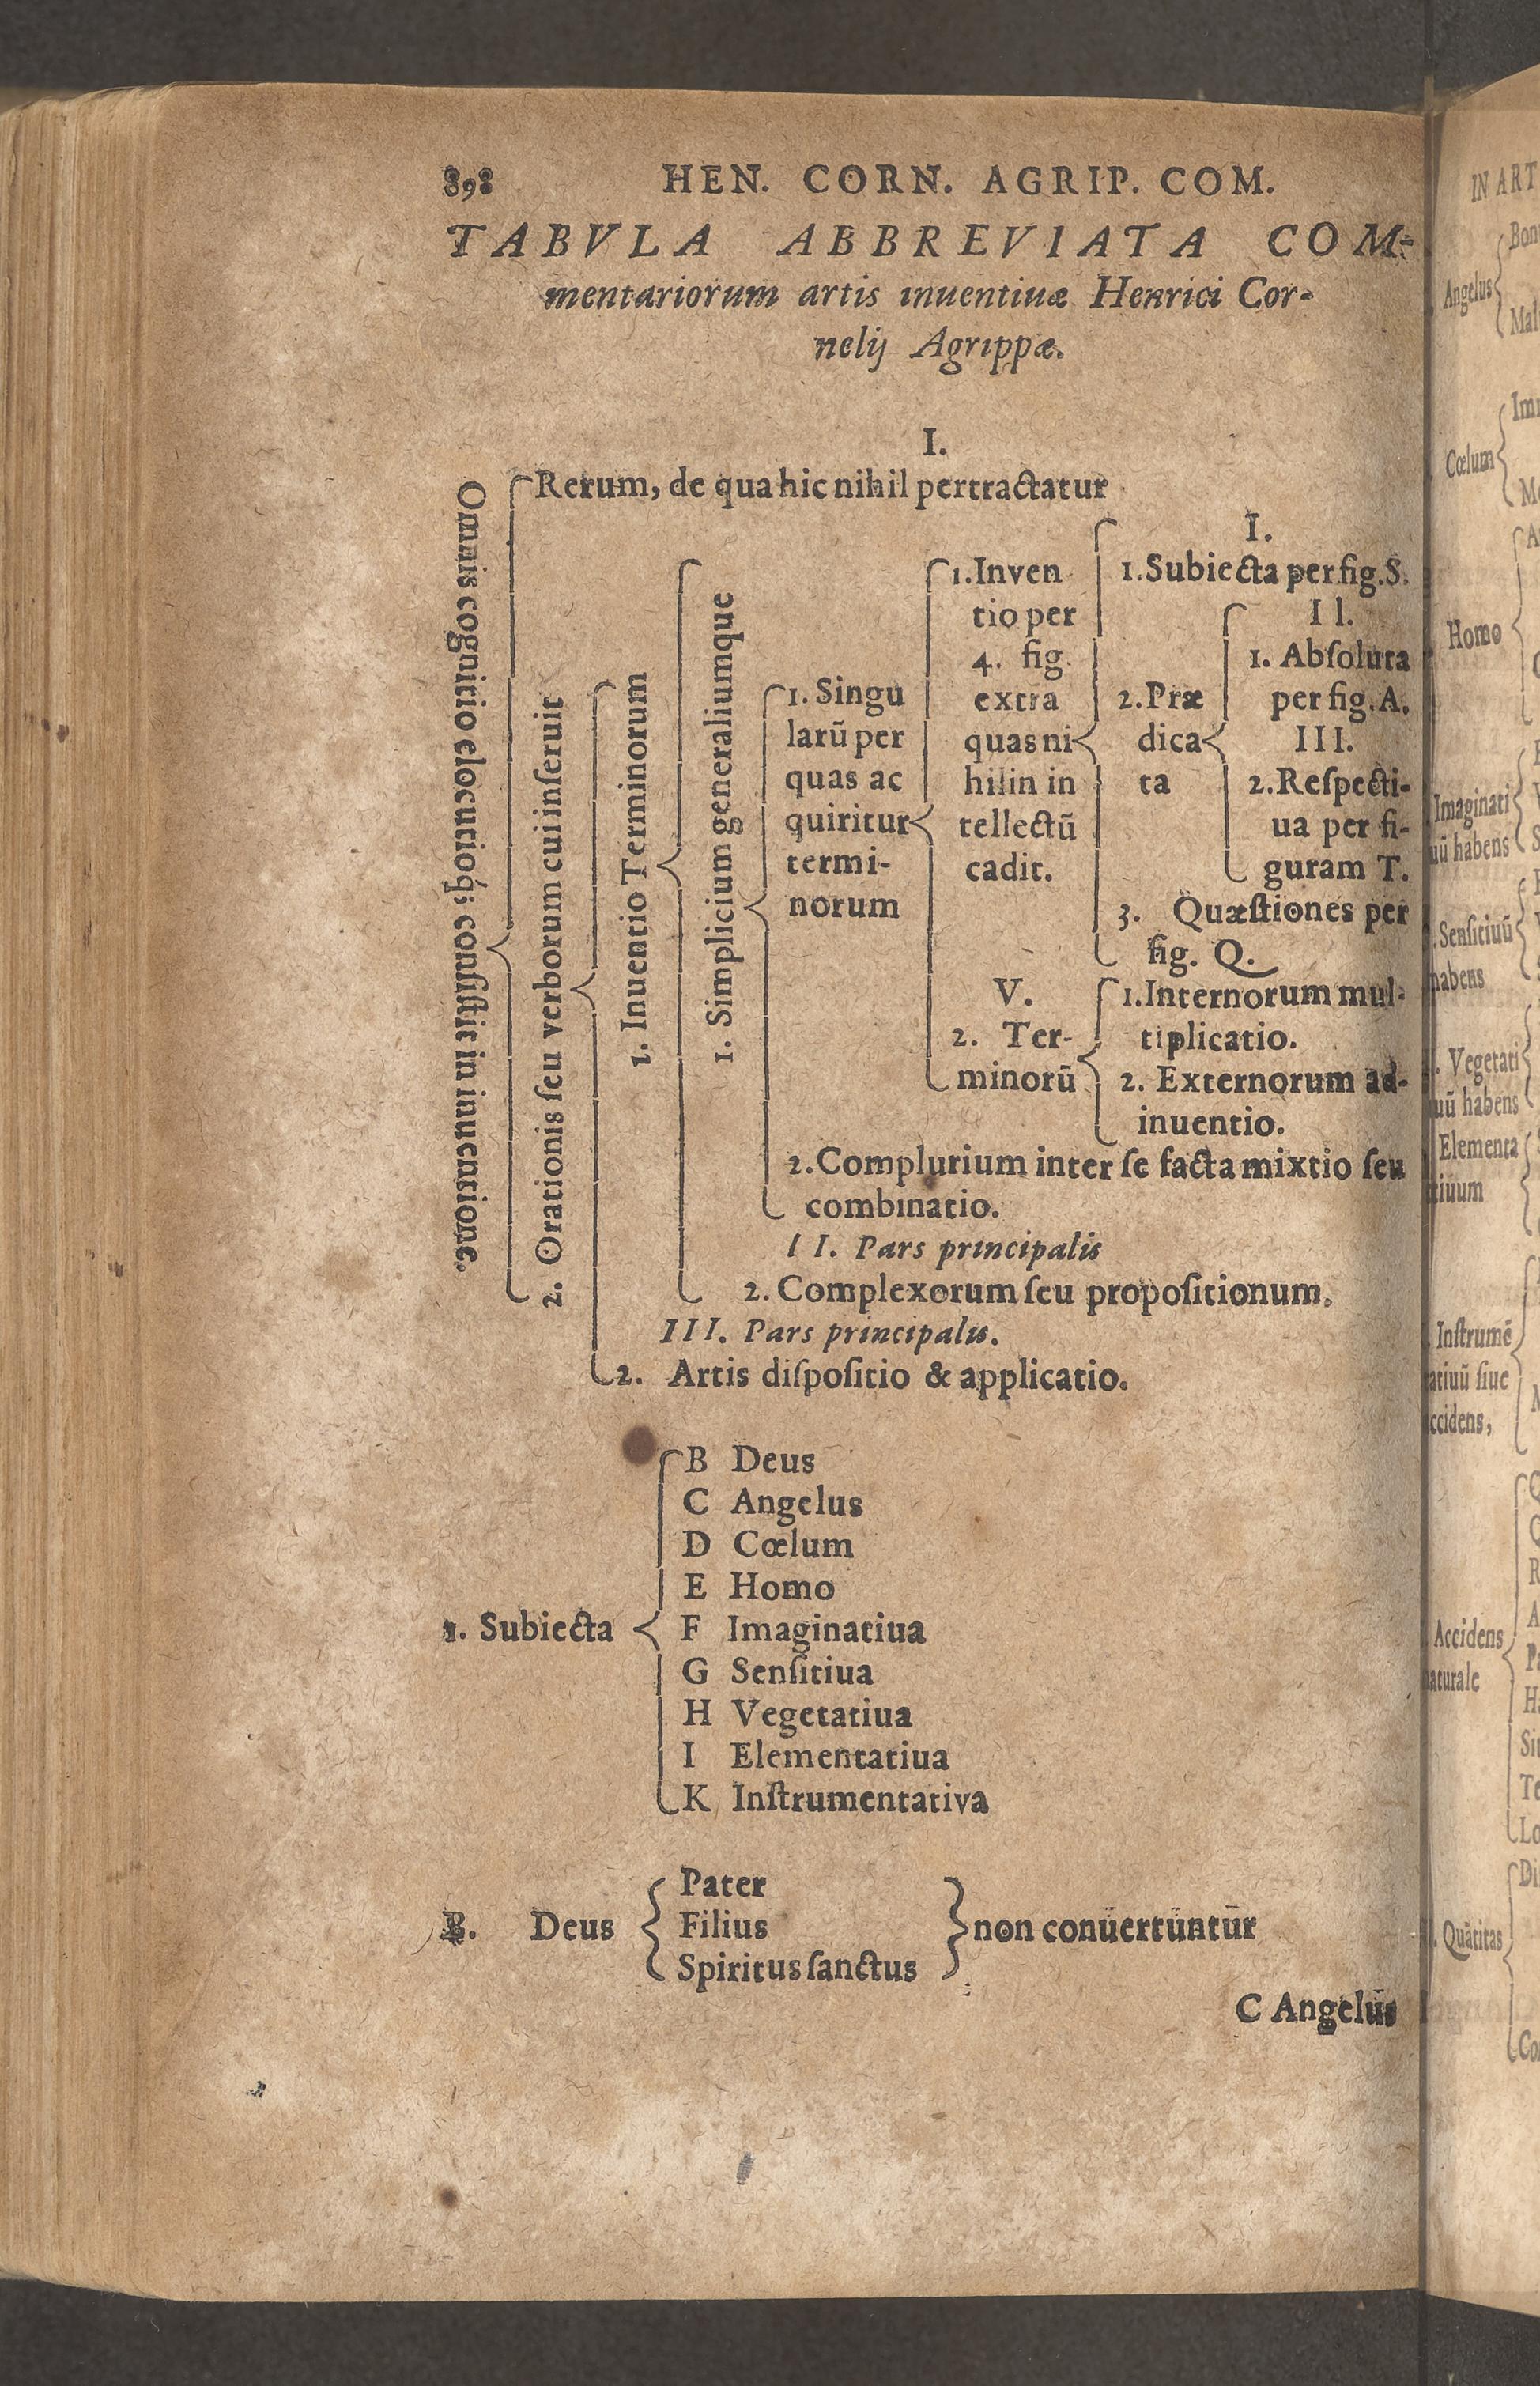 898 HEN. CORN. AGRIP. COM.
TABVLA ABBREVIATA COM-
mentariorum artis inuentiuæ Henrici Cor-
nelij Agrippæ.
Omnis cognitio elocutioq́; conſiſtit in inuentione.
I.
Rerum, de qua hic nihil pertractatur
2. Orationis ſeu verborum cui inſeruit
1. Inuentio Terminorum
1. Simplicium generaliumque
1. Singu
larū per
quas ac
quiritur
termi-
norum
1. Inven
tio per
4. fig.
extra
quas ni
hil in in
tellectū
cadit.
I.
1. Subiecta per fig. S.
2. Præ
dica
ta
II.
1. Abſoluta
per fig. A.
III.
2. Reſpecti-
ua per fi-
guram T.
3. Quæſtiones per
fig. Q.
V.
2. Ter-
minorū
1. Internorum mul-
tiplicatio.
2. Externorum ad-
inuentio.
2. Complurium inter ſe facta mixtio ſeu
combinatio.
II. Pars principalis
2. Complexorum ſeu propoſitionum.
III. Pars principalis.
2. Artis diſpoſitio & applicatio.
1. Subiecta
B Deus
C Angelus
D Cœlum
E Homo
F Imaginatiua
G Senſitiua
H Vegetatiua
I Elementatiua
K Inſtrumentativa
B. Deus
Pater
Filius
Spiritus ſanctus
non conūertūntūr
C Angelūs
IN ART
Angelus
Cœlum
Homo
Imaginati
uū habens
Senſitiuū
habens
Vegetati
uū habens
Elementa
tiuum
Inſtrumē
tatiuū ſiue
accidens,
Accidens
naturale
Quātitas